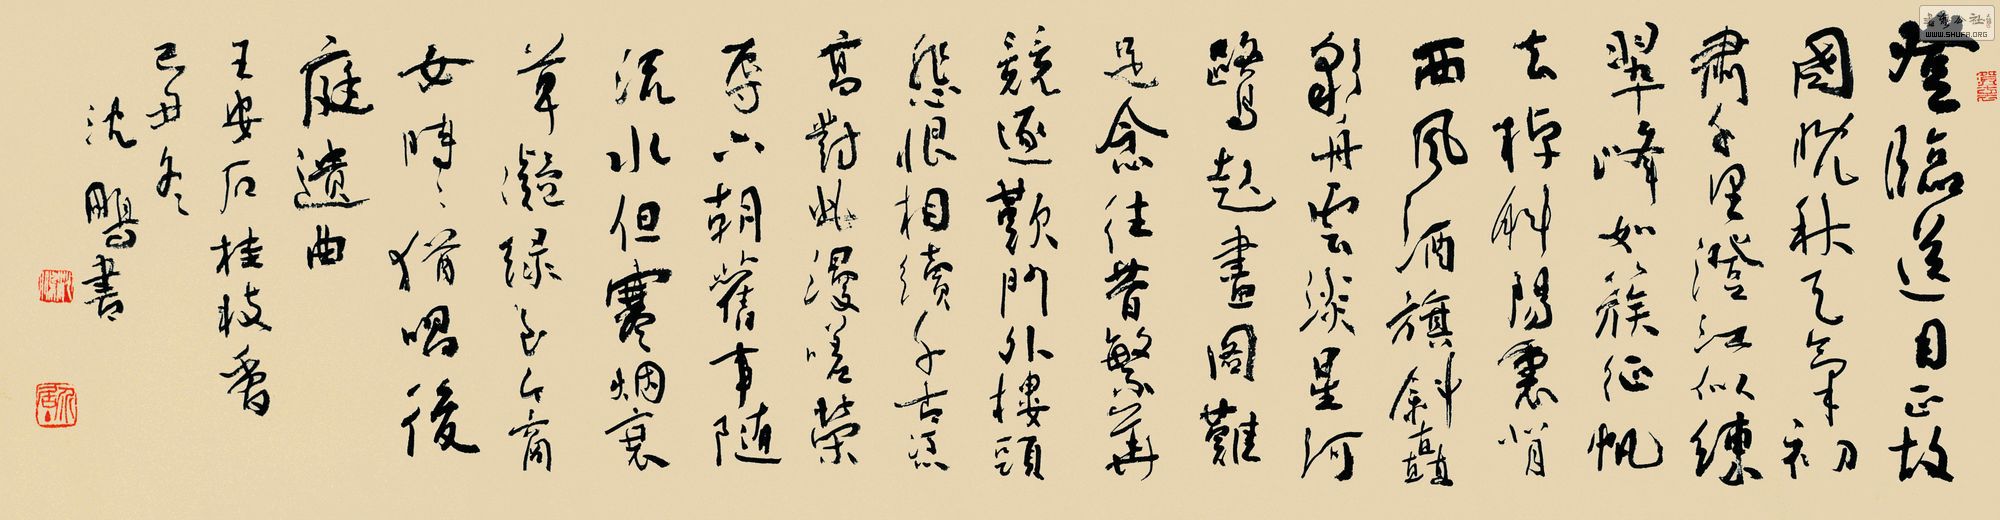 登臨送目正故
國晚秋天氣初
肅千里澄江似練
翠峰如簇征帆
去棹斜陽裏背
西風酒旗斜矗
彩舟雲淡星河
鷺起畫圖難
足念往昔繁華
競逐歎門外樓頭
悲恨相續千古憑
高對此漫嗟榮
辱六朝舊事隨
流水但寒烟衰
草凝綠至今商
女時〻猶唱後
庭遺曲
王安石桂枝香
己丑冬
沈鵬書
WWW.SHUFA.ORG